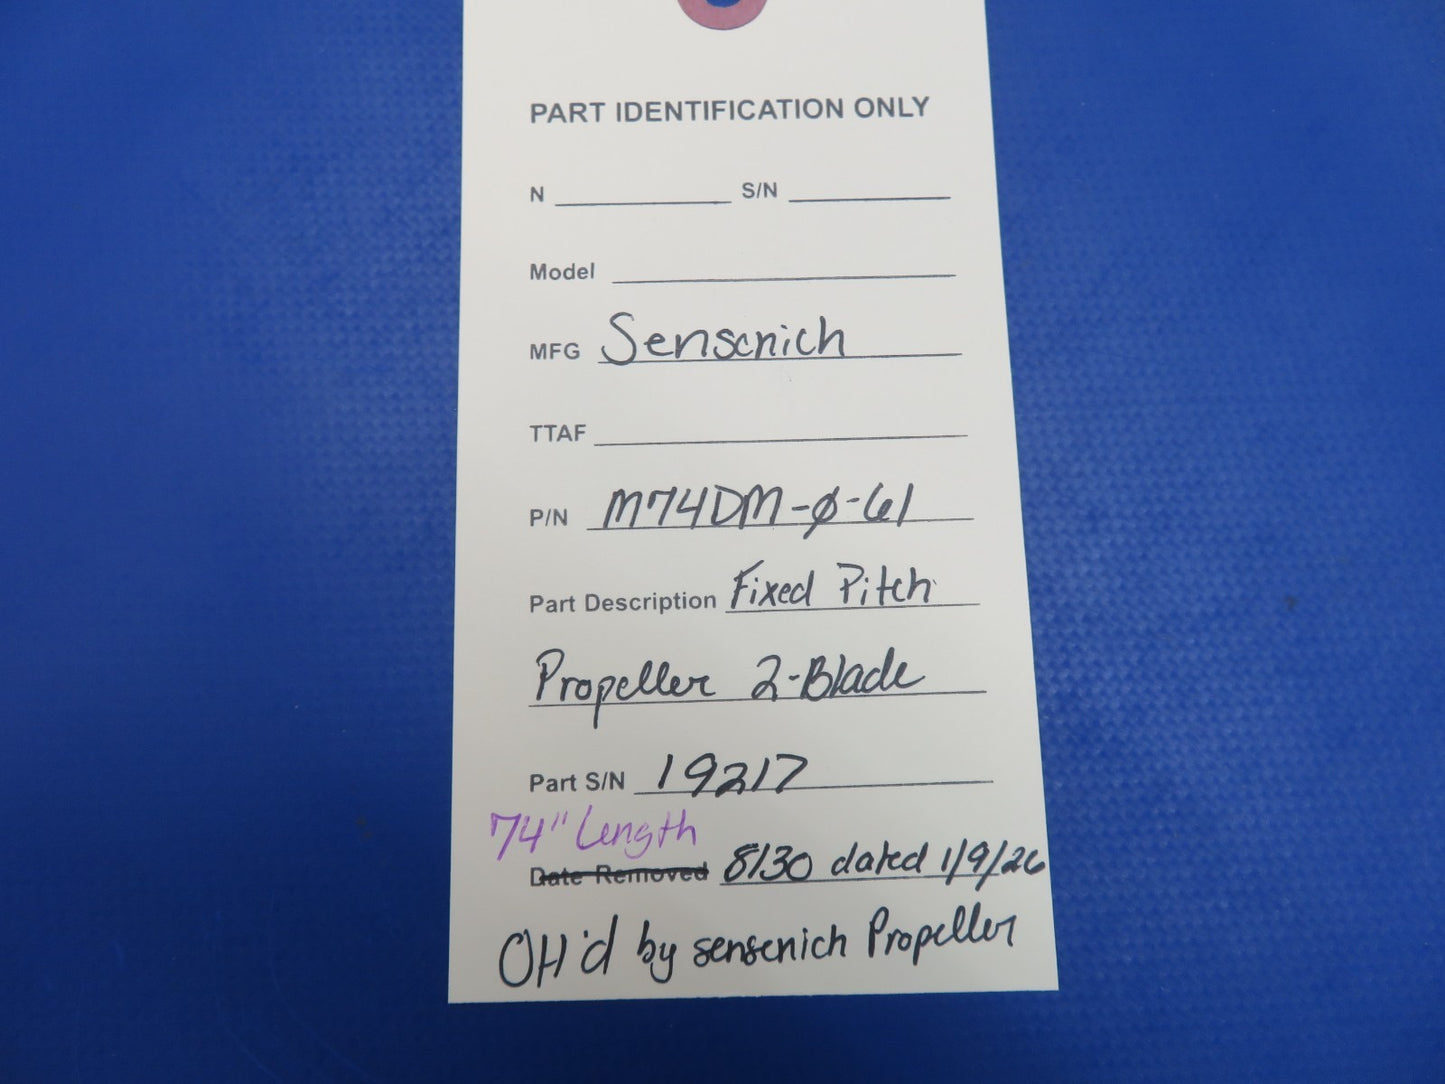 PART IDENTIFICATION ONLY
N ____________ S/N ____________
Model ____________
MFG Senscnich
TTAF ____________
P/N M74DM-Ø-61
Part Description Fixed Pitch
Propeller 2-Blade
Part S/N 19217
74" Length
Date Removed 8130 dated 1/9/26
OH'd by sensenich Propeller